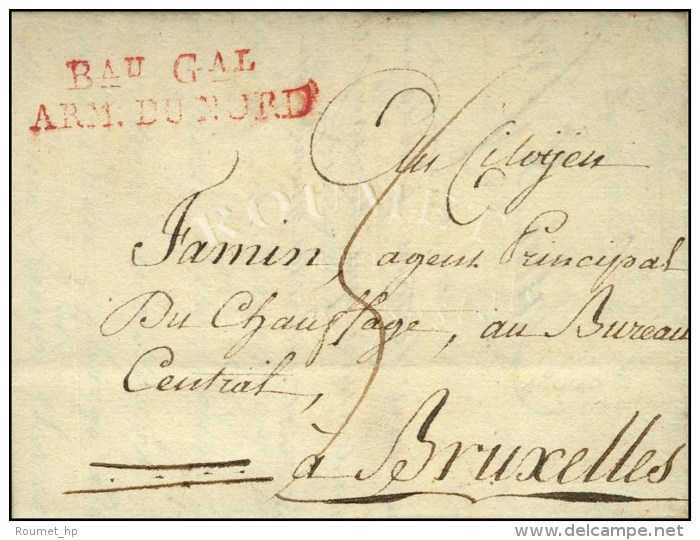 BAU GAL
ARM. DU NORD
Au Citoyen
Famin, agent Principal
Du Chauffage, au Bureau
Central,
à Bruxelles
ROUMET
Roumet_hp
delcampe.net